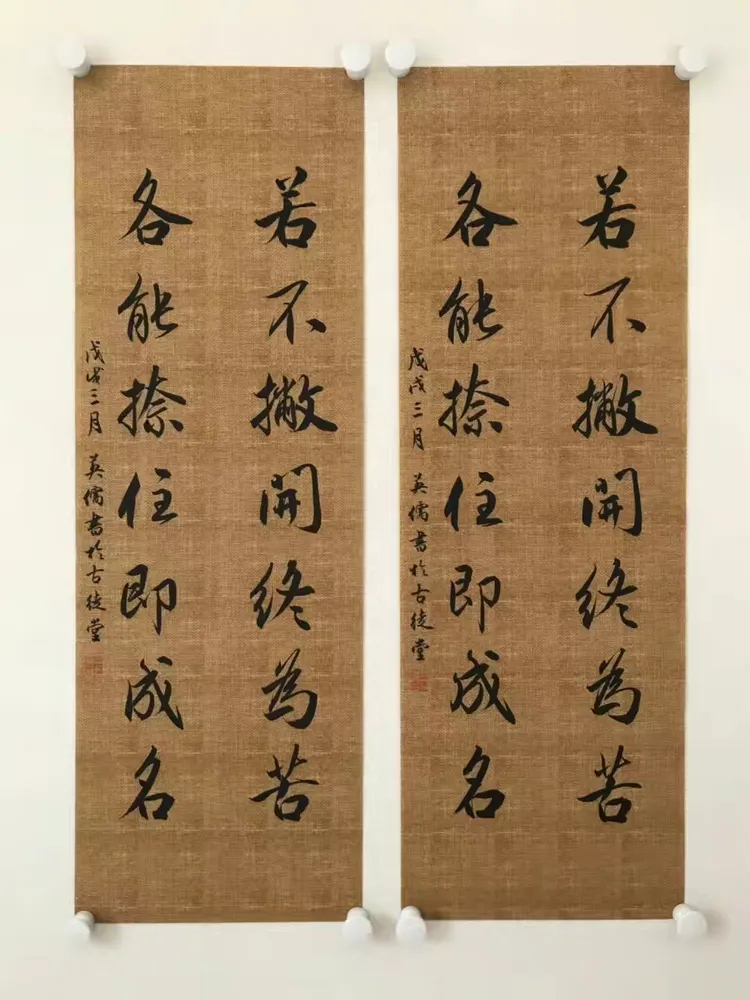 若不撇開終為苦
各能捺住即成名
戊戌三月 英儒書於古徒堂
若不撇開終為苦
各能捺住即成名
戊戌三月 英儒書於古徒堂